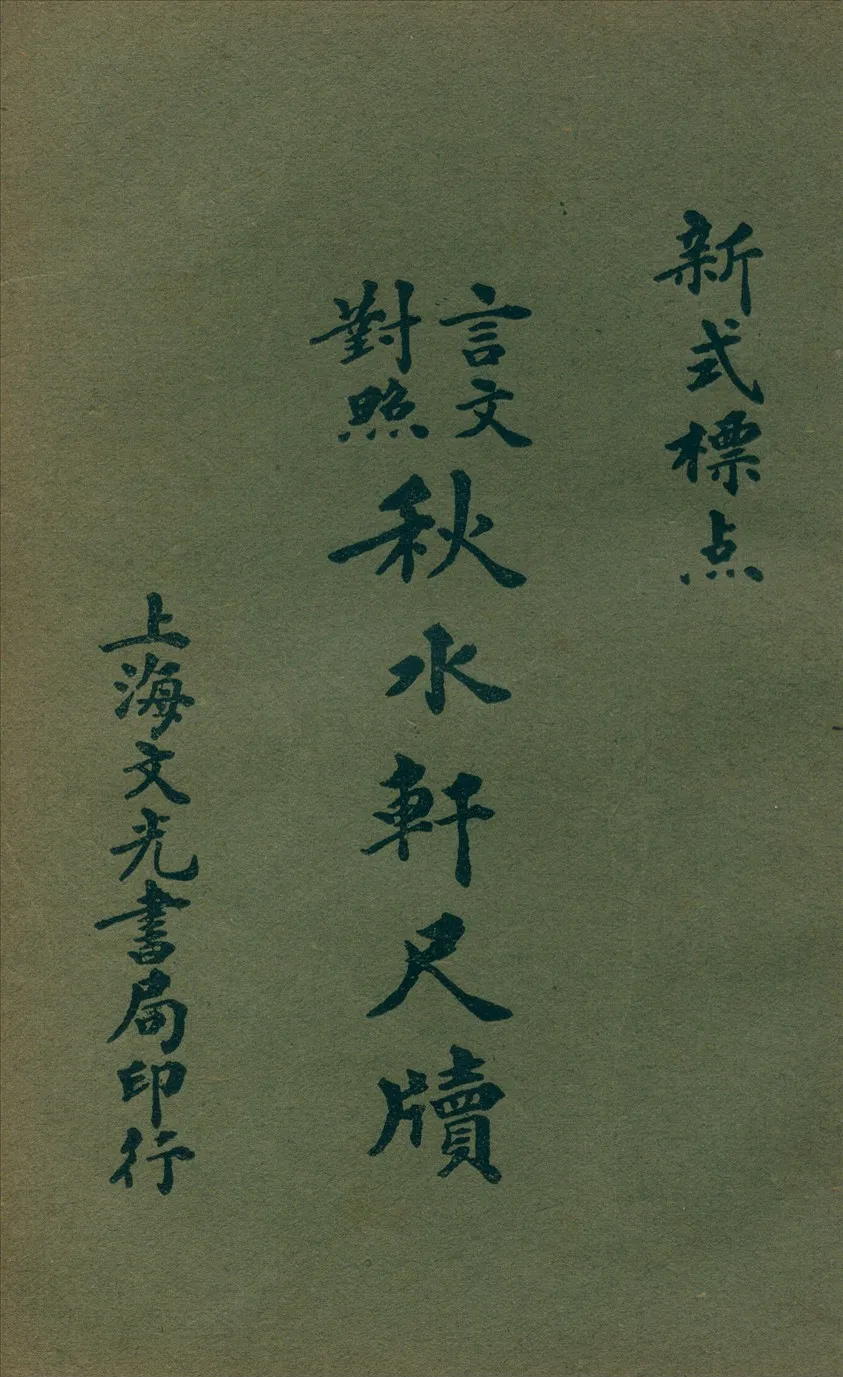 新式標点
言文
對照
秋水軒尺牘
上海文光書局印行